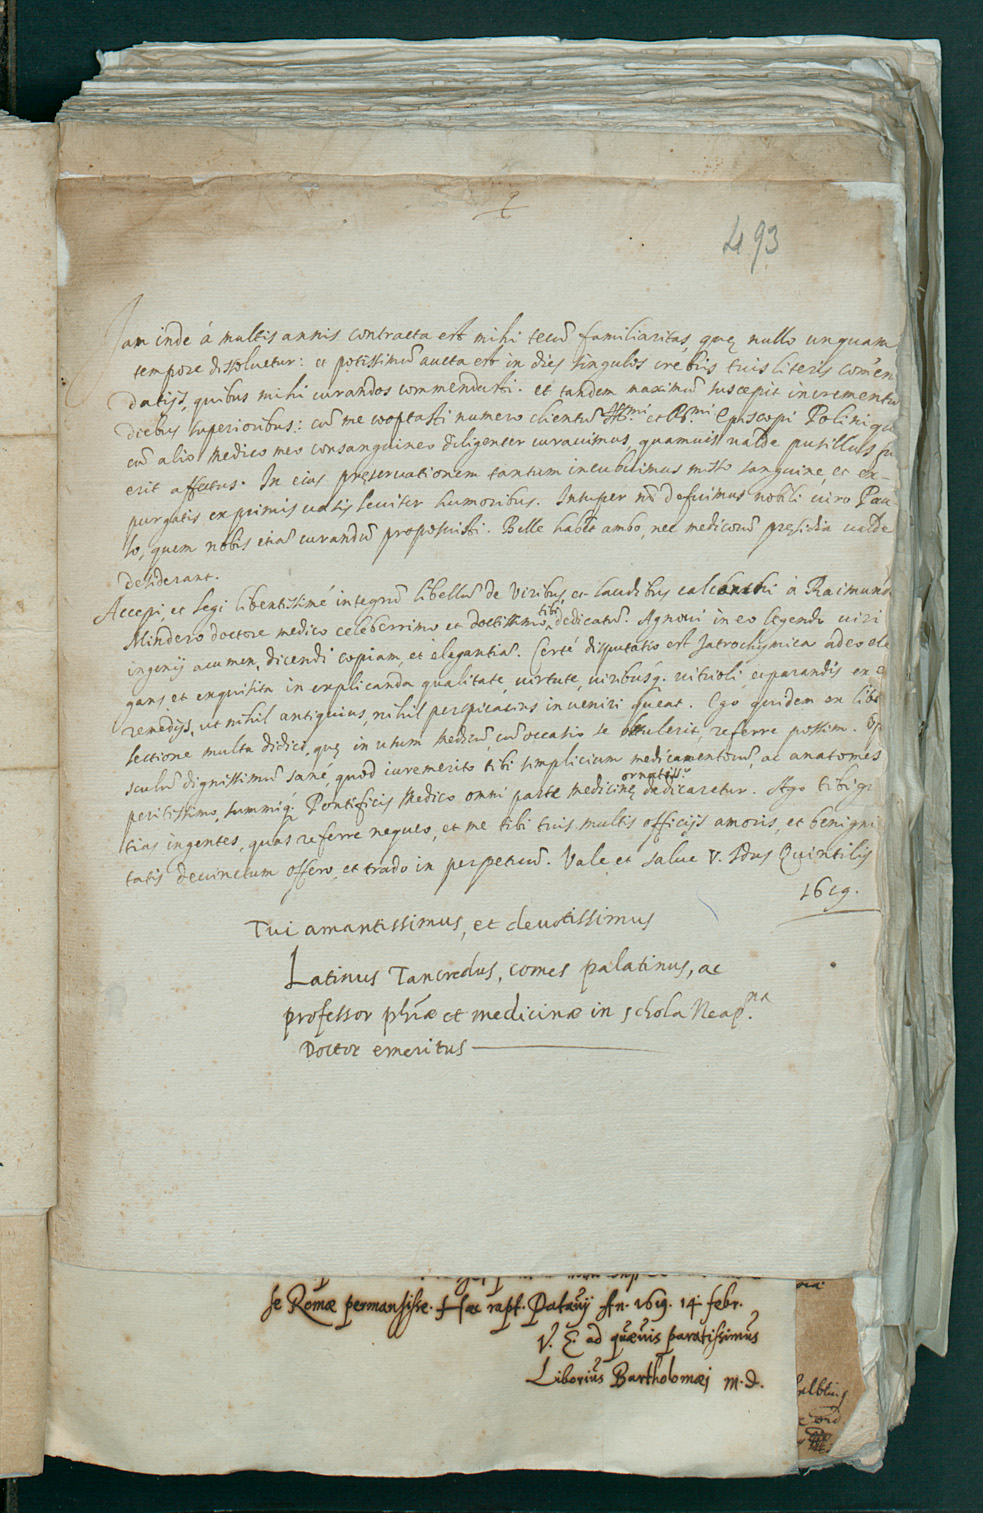 493
Jam inde á multis annis contracta est mihi tecũ familiaritas, quę nullo unquam
tempore dissoluetur: et potissimũ aucta est in dies singulos crebris tuis literis com̃en
datijs, quibus mihi curandos commendasti. et tandem maximũ suscepit incrementũ
diebus superioribus: cũ me cooptasti numero clientũ Ill.mi et R.mi Episcopi Polini que
cũ alio Medico meo consanguineo diligenter curauimus, quamuis valde pusillus fu
erit affectus. In eius pręseruationem tantum incubuimus misso sanguine, et ex-
purgatis ex primis uatis leuiter humoribus. Insuper nõ defuimus nobili uiro Pau
lo, quem nobis etiã curandũ proposuisti. Belle habẽt ambo, nec medicorũ pręsidia ualde
desiderant.
Accepi, et legi libentissimé integrũ libellũ de Viribus et laudibus calcanthi à Raimund
Mindero doctore medico celeberrimo et doctissimo tibi dedicatũ. Agnoui in eo legendo uiri
ingenij acumen, dicendi copiam, et elegantiã. Certé disputatio est Jatrochymica adeo ele
gans, et exquisita in explicanda qualitate, uirtute, uiribusq. uitrioli, et parandis ex eo
remedijs, ut nihil antiquius, nihil perspicacius inueniri queat. Ego quidem ex libri
lectione multa didici, quę in usum Medicũ, cũ occasio se obtulerit, referre possim. Op
sculũ dignissimũ sané, quod iuremerito tibi simplicium medicamentorũ, ac anatomes
peritissimo, summiq; Pontificis Medico omni parte medicinę ornatissiº dedicaretur. Ago tibi gr
tias ingentes, quas referre nequeo, et me tibi tuis multis officijs amoris, et benigni
tatis deuinctum offero, et trado in perpetuũ. Vale et salue V. Idus Quintilis
1619.
Tui amantissimus, et deuotissimus
Latinus Tancredus, comes palatinus, ac
professor phĩæ et medicinæ in schola Neap.na
Doctor emeritus
se Romæ permansisse. Hæc rapt. Patauij An. 1619. 14. febr.
V. E. ad quæuis paratissimus
Liborius Bartholomæj m.d.